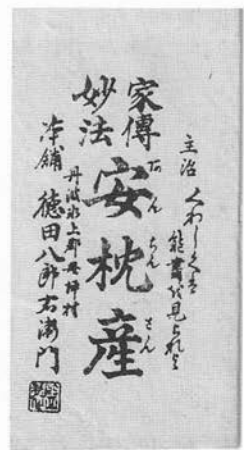 主治 くわしくは
能書を見られよ
家傳
妙法
安枕産
あんちんさん
丹波氷上郡母坪村
本舗 徳田八郎右衛門